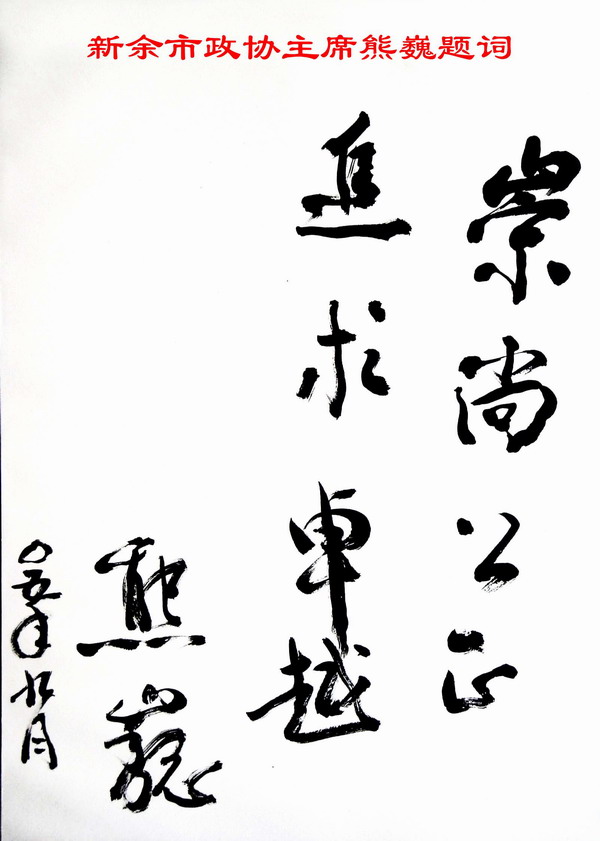 新余市政协主席熊巍题词
崇尚公正
追求卓越
熊巍
〇五年九月